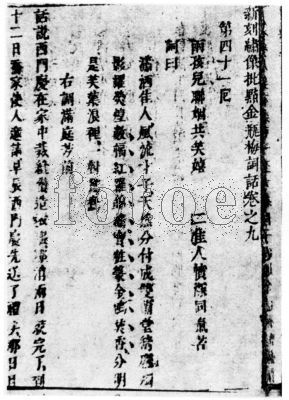 新刻繡像批點金瓶梅詞話卷之九
第四十一回
兩孩兒聯姻共笑嬉 二佳人憤深同氣苦
詞曰
瀟洒佳人風流才子天然分付成雙蘭堂綺席
影耀熒煌數幅紅羅錦繡寶粧篆金鴨焚香分明
是芙蕖浪裡一對鴛鴦
右調滿庭芳前
話說西門慶在家中裁縫儹造衣服那消兩日就完了到
十二日喬家使人邀請早辰西門慶先送了禮去那日月
fatoe